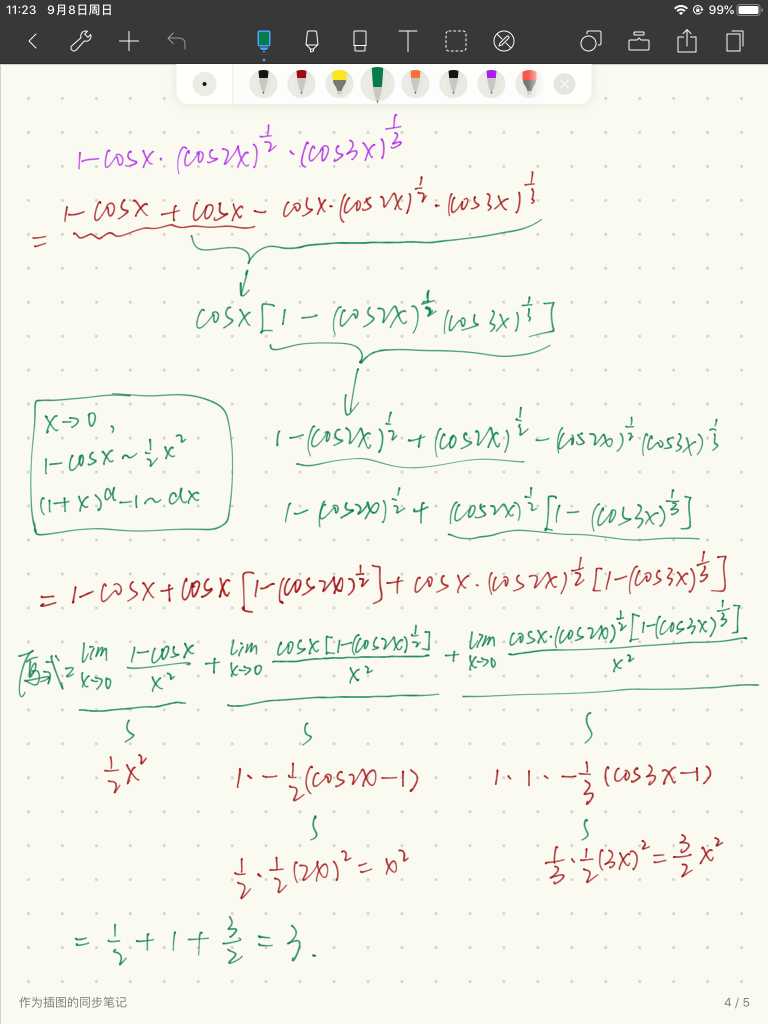 11:23 9月8日周日 99%
1-cosx·(cos2x)^{1/2}·(cos3x)^{1/3}
= 1-cosx+cosx-cosx·(cos2x)^{1/2}·(cos3x)^{1/3}
cosx[1-(cos2x)^{1/2}(cos3x)^{1/3}]
x→0,
1-cosx~\frac{1}{2}x^2
(1+x)^α-1~αx
1-(cos2x)^{1/2}+(cos2x)^{1/2}-(cos2x)^{1/2}(cos3x)^{1/3}
1-(cos2x)^{1/2}+(cos2x)^{1/2}[1-(cos3x)^{1/3}]
= 1-cosx+cosx[1-(cos2x)^{1/2}]+cosx·(cos2x)^{1/2}[1-(cos3x)^{1/3}]
原式=\lim_{x→0}\frac{1-cosx}{x^2}+\lim_{x→0}\frac{cosx[1-(cos2x)^{1/2}]}{x^2}+\lim_{x→0}\frac{cosx·(cos2x)^{1/2}[1-(cos3x)^{1/3}]}{x^2}
\frac{1}{2}x^2 1·-\frac{1}{2}(cos2x-1) 1·1·-\frac{1}{3}(cos3x-1)
\frac{1}{2}·\frac{1}{2}(2x)^2=x^2 \frac{1}{3}·\frac{1}{2}(3x)^2=\frac{3}{2}x^2
=\frac{1}{2}+1+\frac{3}{2}=3.
作为插图的同步笔记 4 / 5